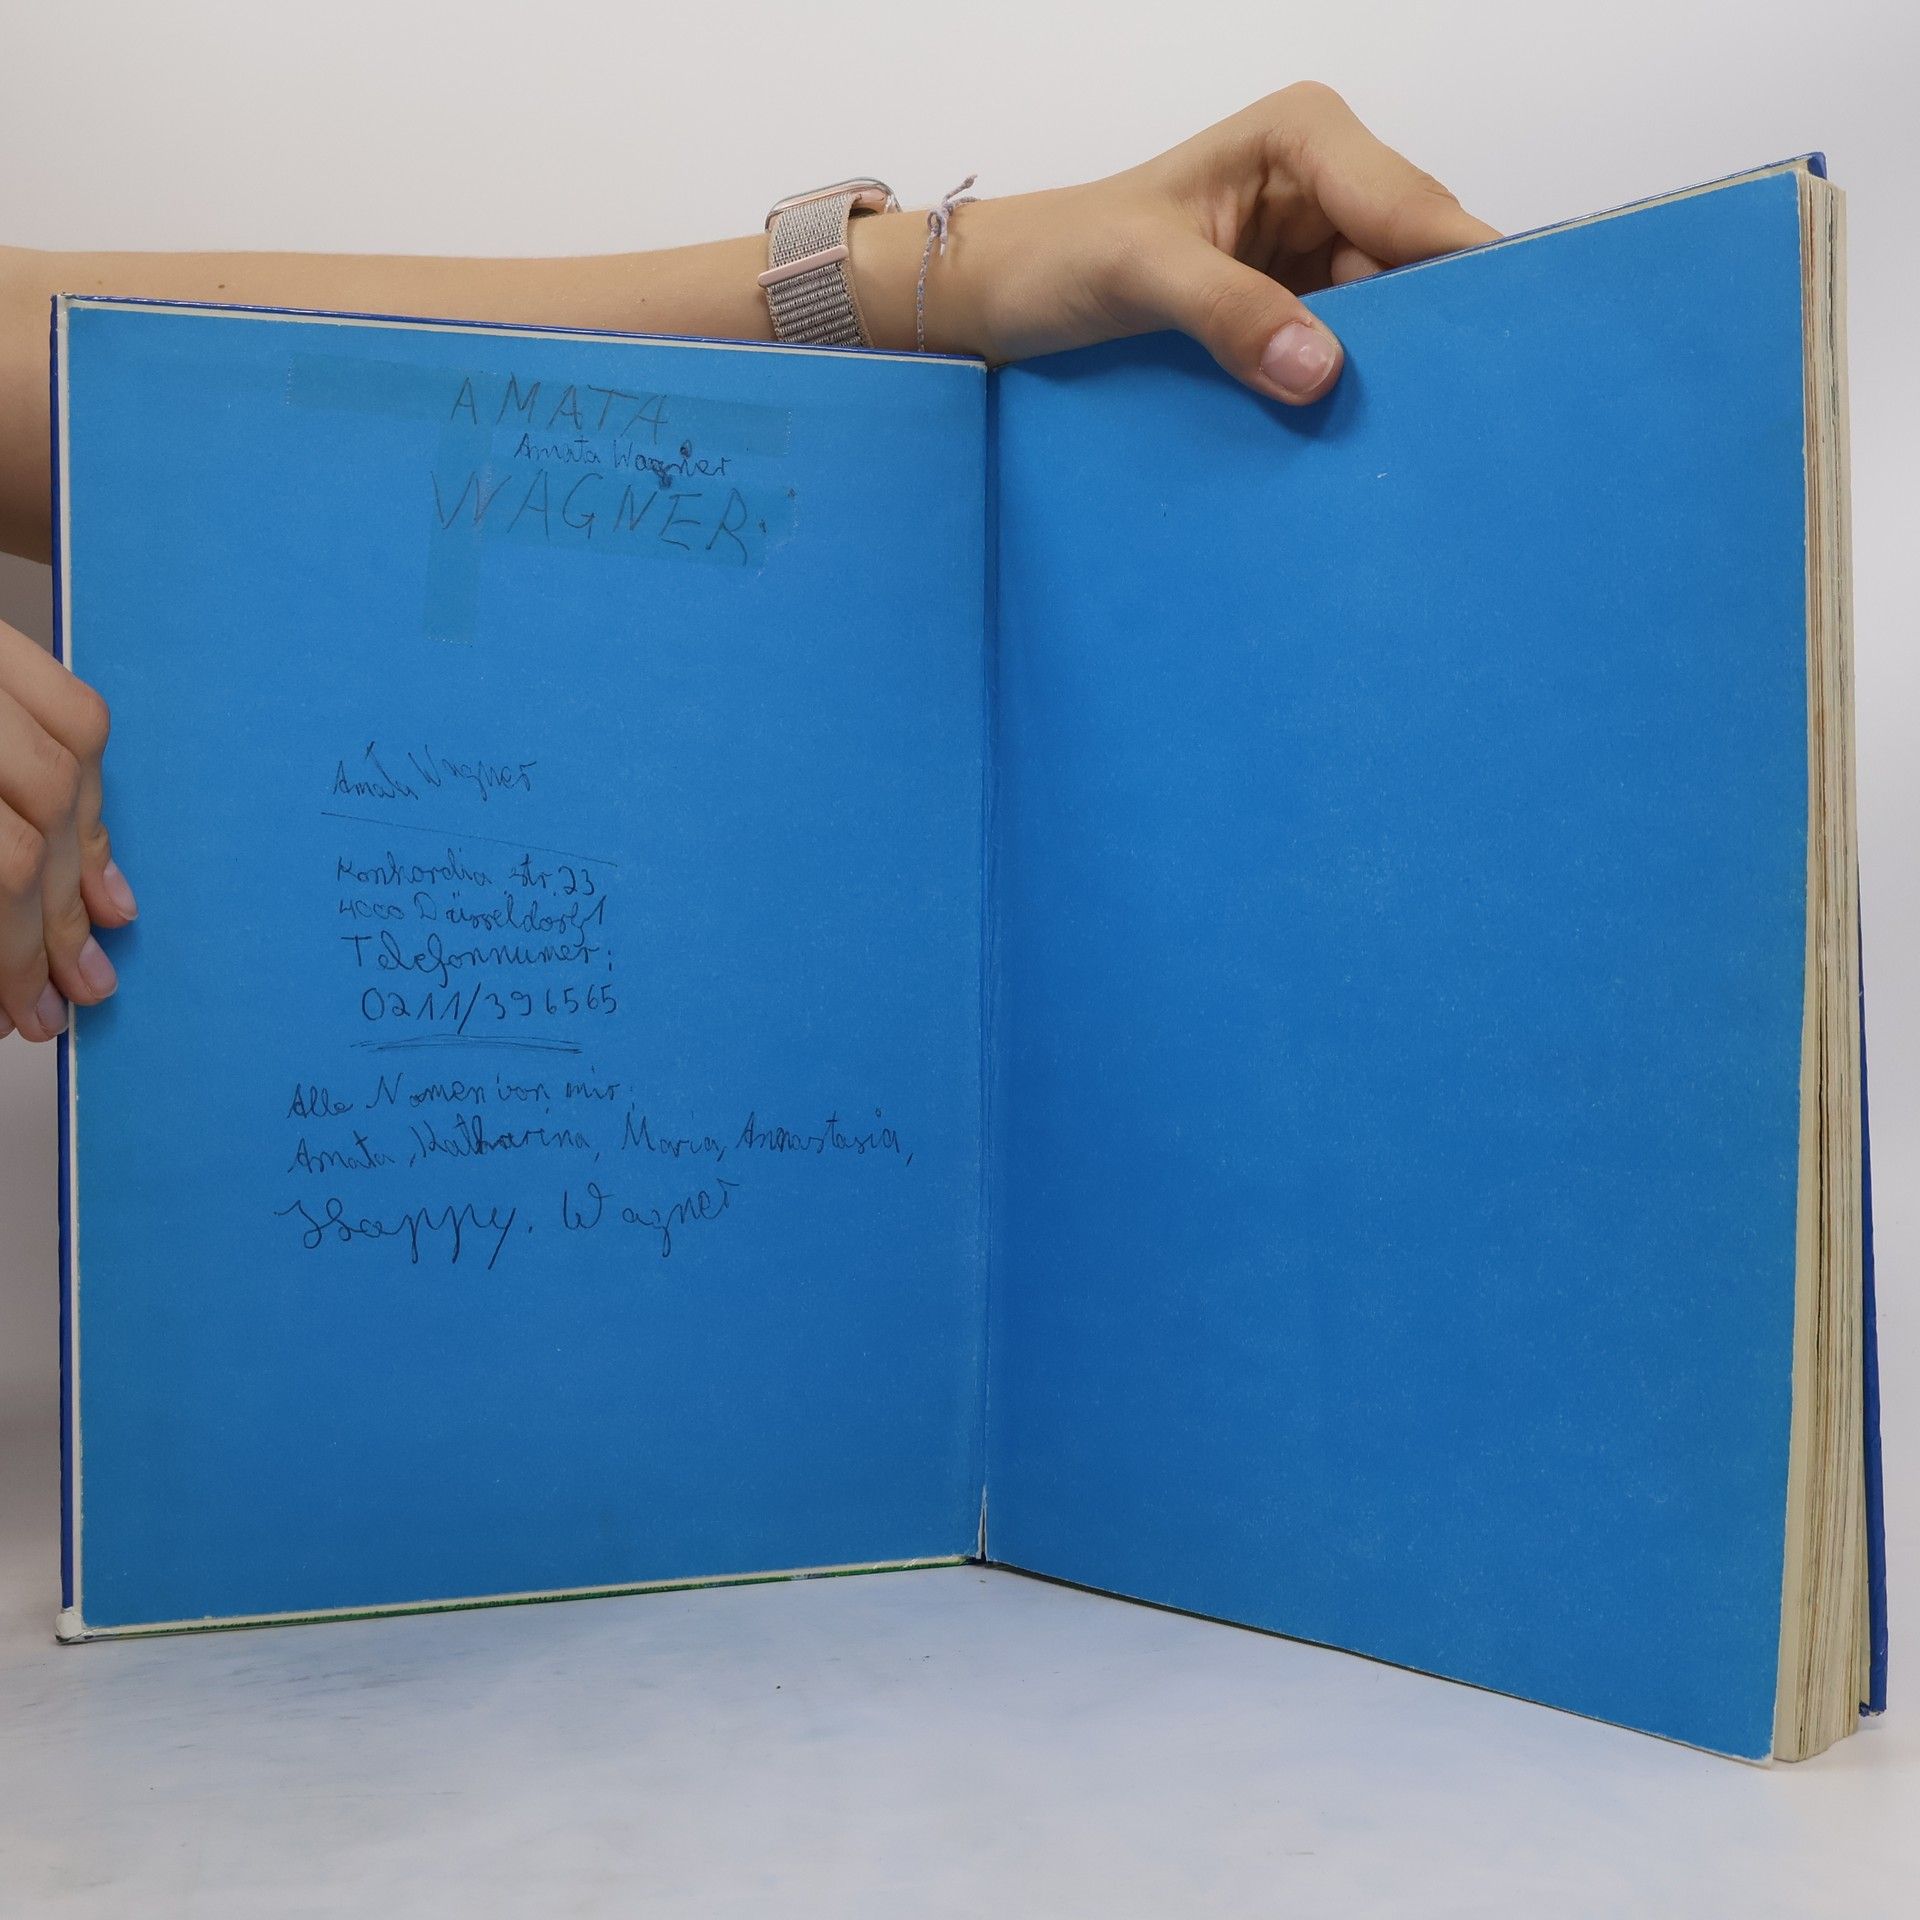 AMATA
Amata Wagner
WAGNER.
Amata Wagner
Konkordia str. 23
4000 Düsseldorf 1
Telefonnumer:
0211/396565
Alle Namen von mir:
Amata, Katharina, Maria, Annastasia,
Happy. Wagner